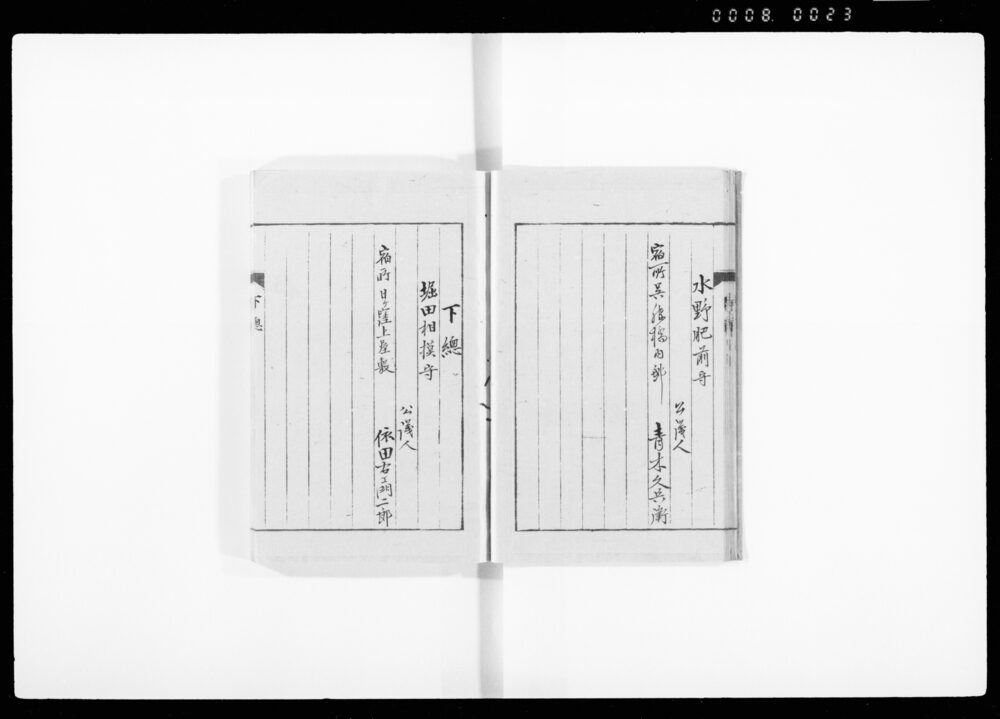 0008. 0023
水野肥前守
公議人
宿所呉服橋内邸
青木久兵衛
下總
堀田相摸守
公議人
宿所日ヶ窪上屋敷
依田右エ門二郎
下總